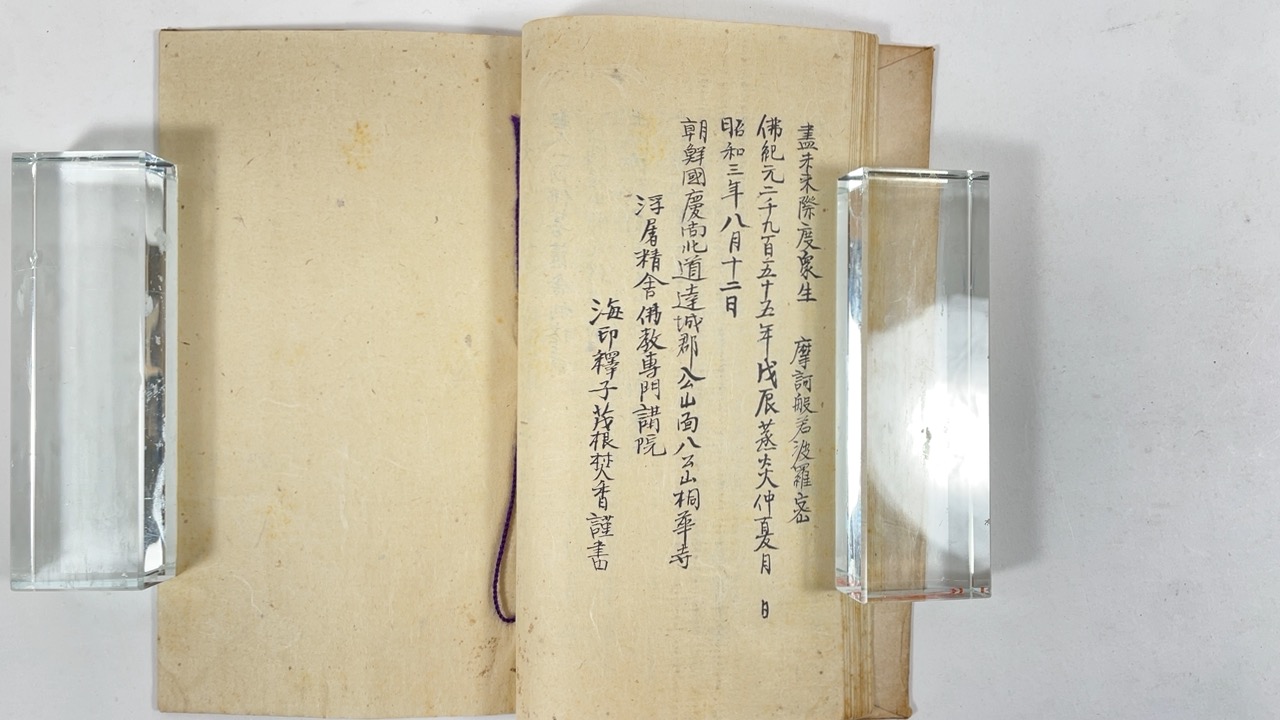 盡未來際度衆生　摩訶般若波羅密
佛紀元二千九百五十五年戊辰蒸炎仲夏月　日
昭和三年八月十二日
朝鮮國慶尚北道達城郡公山面八公山桐華寺
浮屠精舍佛教專門講院
海印釋子茂根焚香謹書